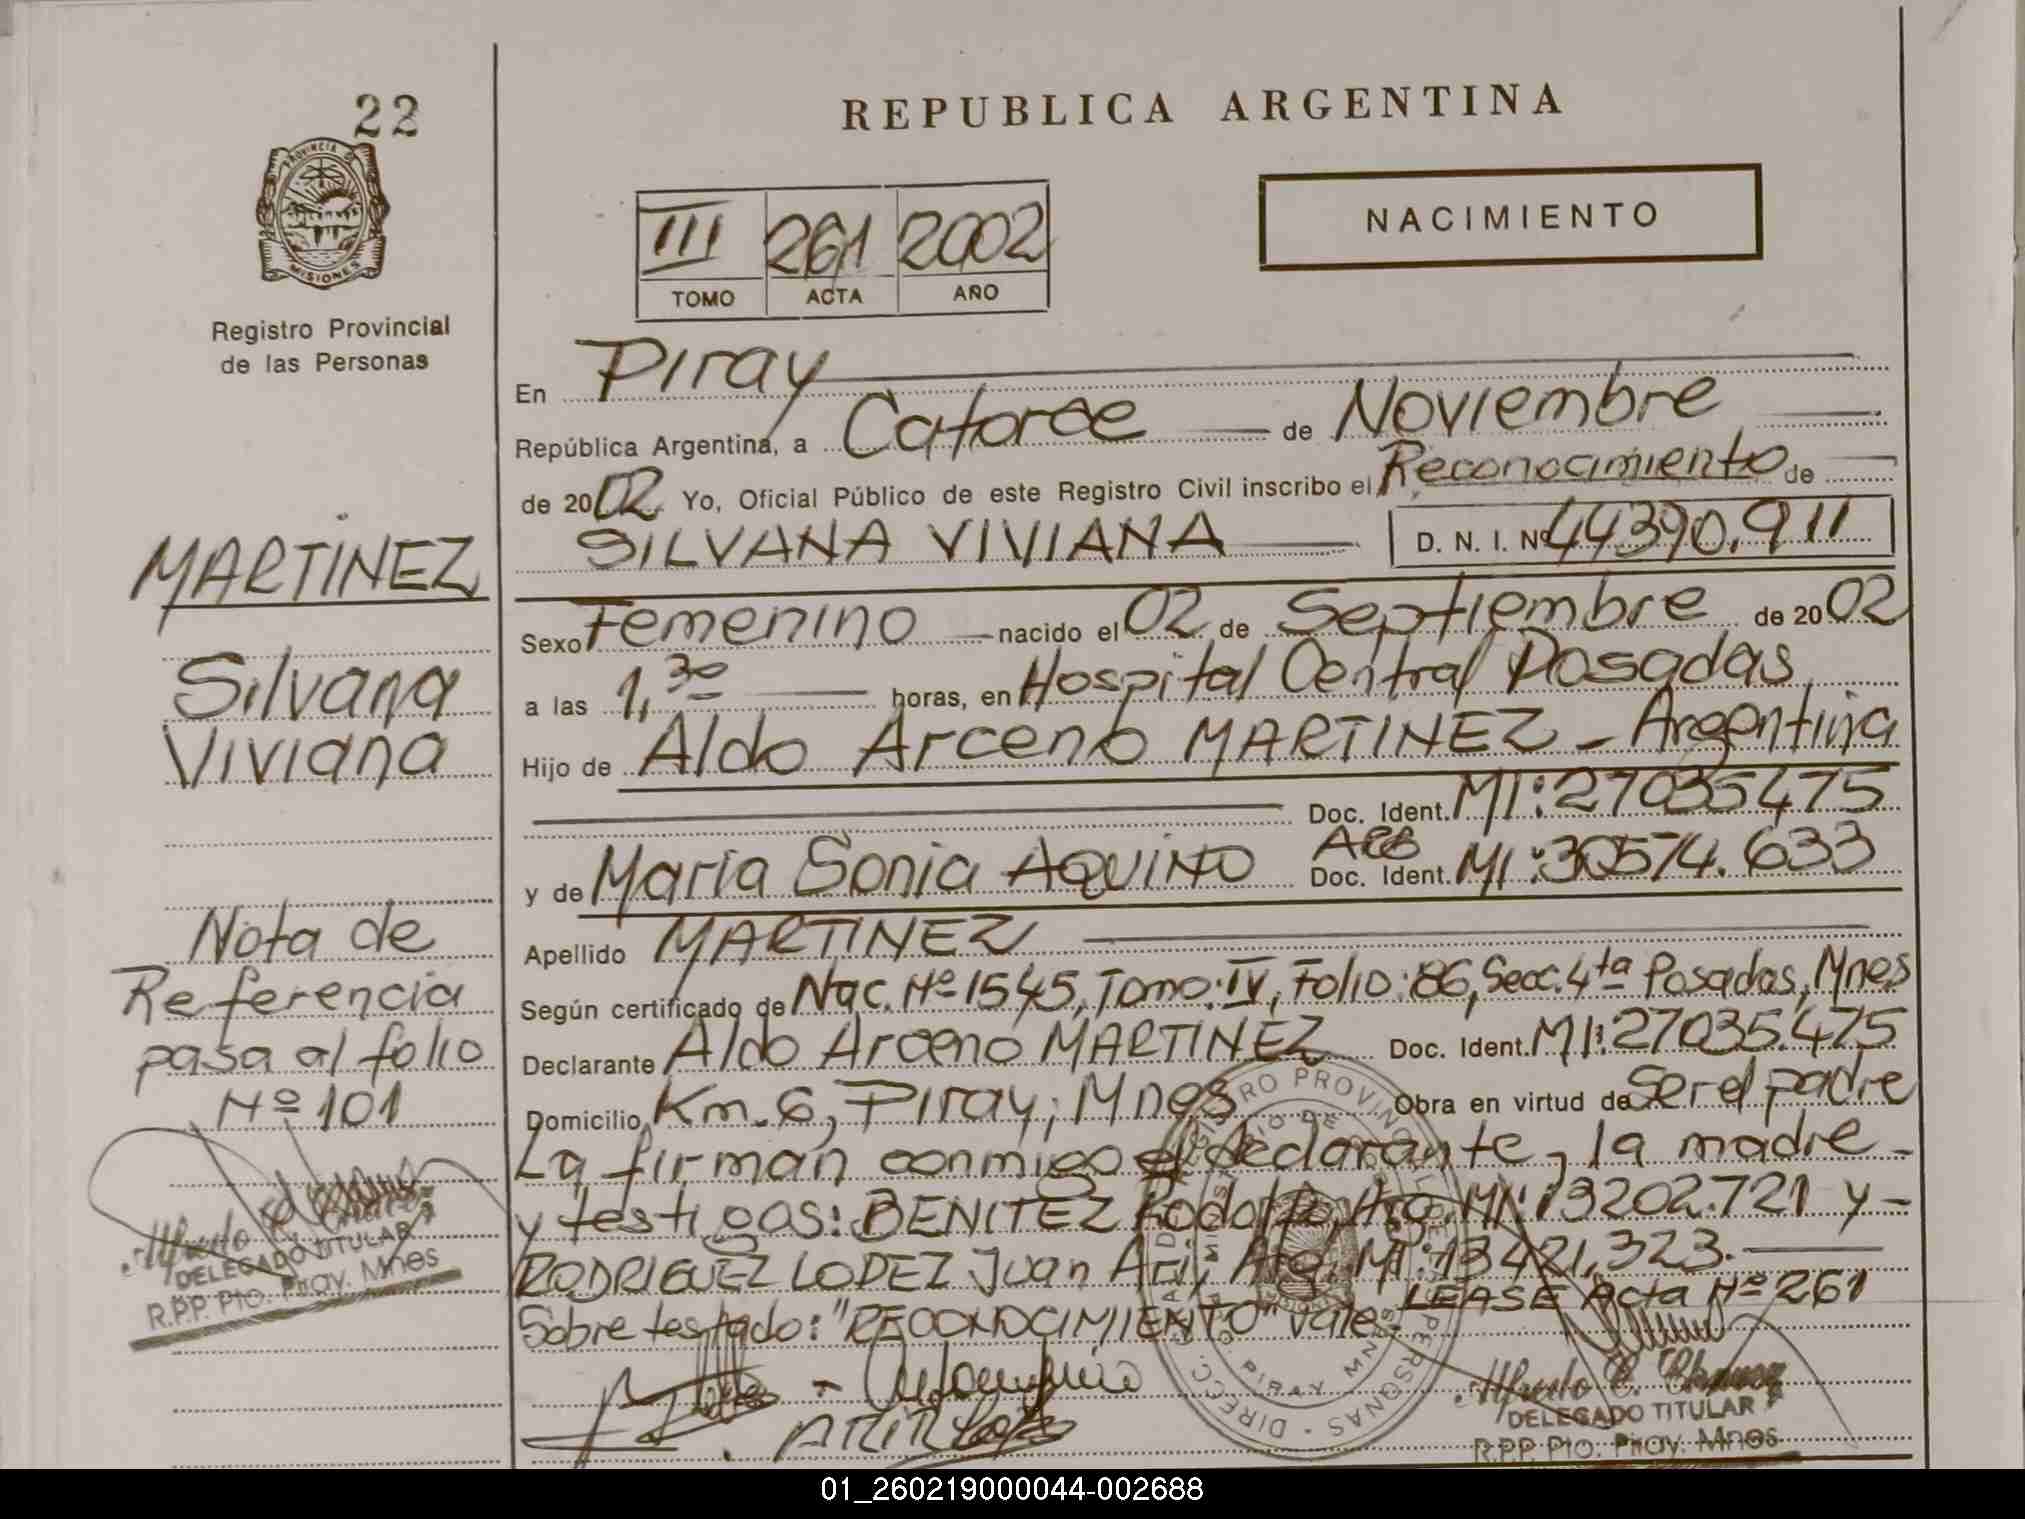 22
PROVINCIA DE
MISIONES
Registro Provincial
de las Personas
MARTINEZ
Silvana
Viviana
Nota de
Referencia
pasa al folio
Nº 101
Alfredo
DELEGADO TITULAR
R.P.P. Pto. Piray. Mnes
REPUBLICA ARGENTINA
III 261 2002
TOMO ACTA AÑO
NACIMIENTO
En Piray
República Argentina, a Catorce de Noviembre
de 2002 Yo, Oficial Público de este Registro Civil inscribo el Reconocimiento de
SILVANA VIVIANA D. N. I. Nº 44390.911
Sexo Femenino nacido el 02 de Septiembre de 20 02
a las 1,30 horas, en Hospital Central Posadas
Hijo de Aldo Arceno MARTINEZ - Argentina
Doc. Ident. MI: 27035475
y de Maria Sonia AQUINO ARG Doc. Ident. MI: 30574.633
Apellido MARTINEZ
Según certificado de Nac. Nº 1545, Tomo: IV, Folio: 86, Secc. 4ta Posadas, Mnes
Declarante Aldo Arceno MARTINEZ Doc. Ident. MI: 27035.475
Domicilio Km. 6, Piray, Mnes Obra en virtud de Ser el padre
La firman conmigo el declarante, la madre -
y testigos: BENITEZ Rodolfo, Arg. MI: 13202.721 y -
RODRIGUEZ LOPEZ Juan Ari, Arg. MI: 13421,323.-
LEASE Acta Nº 261
Sobre testado: "RECONOCIMIENTO" Vale.-
Alfredo C.
DELEGADO TITULAR
R.P.P. Pto. Piray. Mnes
01_260219000044-002688